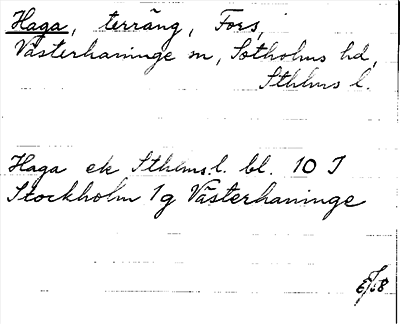 Haga, terräng, Fors,
Västerhaninge sn, Sotholms hd,
Sthlms l.
Haga ek Sthlms l. bl. 10 I
Stockholm 1g Västerhaninge